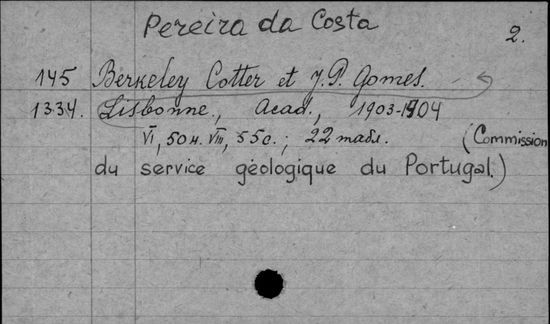 Pereira da Costa 2.
145 Berkeley Cotter et J.P. Gomes.
1334. Lisbonne., Acad., 1903-1904
VI, 50 н. VIII, 55 с.; 22 табл. (Commission
du service géologique du Portugal.)